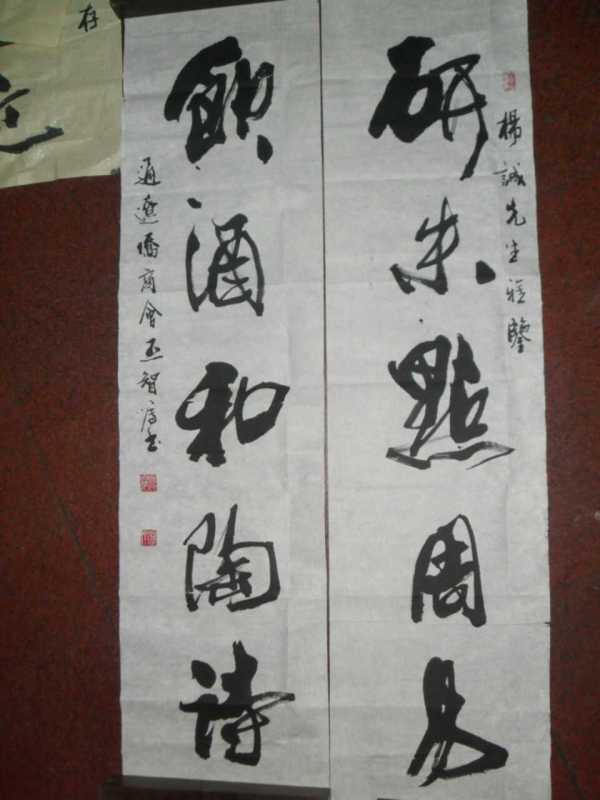 研朱點周易
楊誠先生雅鑒
飲酒和陶詩
通遼 商會 智 書
存